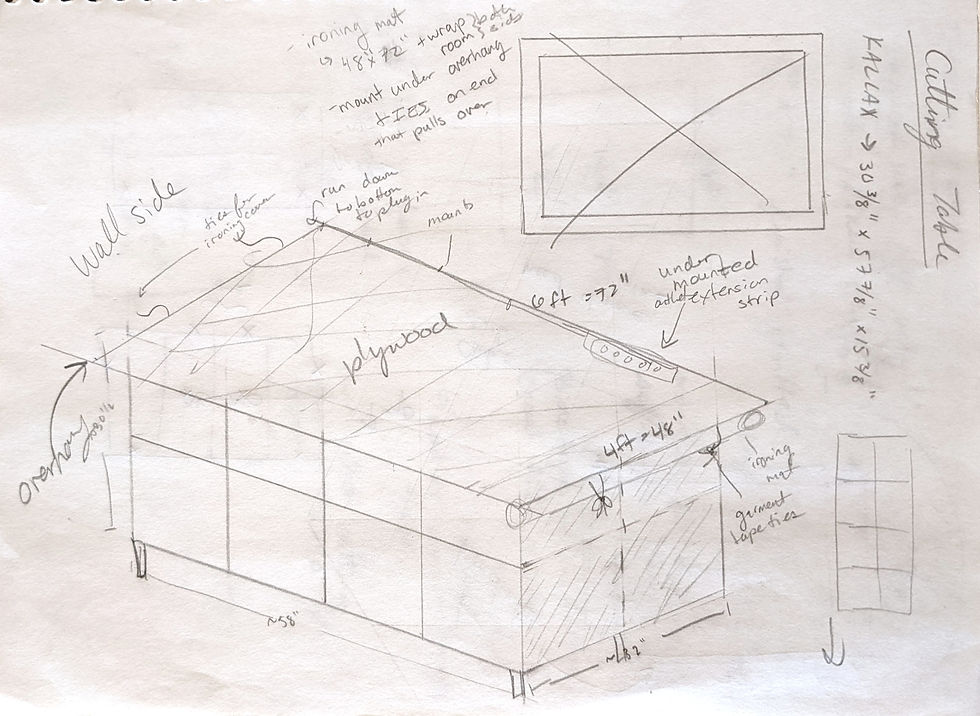 Cutting Table
KALLAX → 30 3/8" x 57 7/8" x 15 3/8"
- ironing mat
↳ 48" x 72" + wrap both
room side
- mount under overhang
+ TIES on end
that pulls over
Wall side
ties for
ironing cover
run down
to bottom
to plug in
mounts
6ft = 72"
under
mounted
extension
strip
plywood
overhang
30 1/2
4ft = 48"
ironing
mat
garment
tape ties
~58"